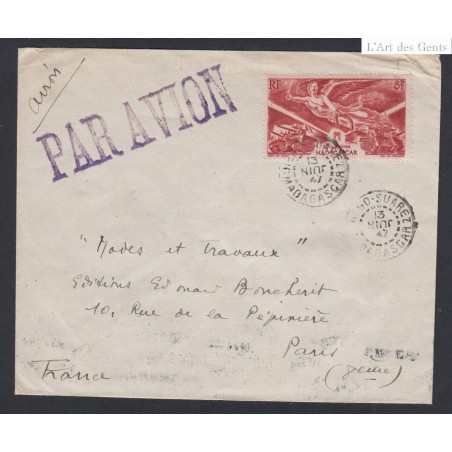 L'Art des Gents
avion
PAR AVION
RF 8F
MADAGASCAR
13
JUIN
47
MADAGASCAR
DIEGO-SUAREZ
13
JUIN
47
MADAGASCAR
"Modes et travaux"
Editions Edouard Boucherit
10, Rue de la Pépinière
Paris
France (8eme)